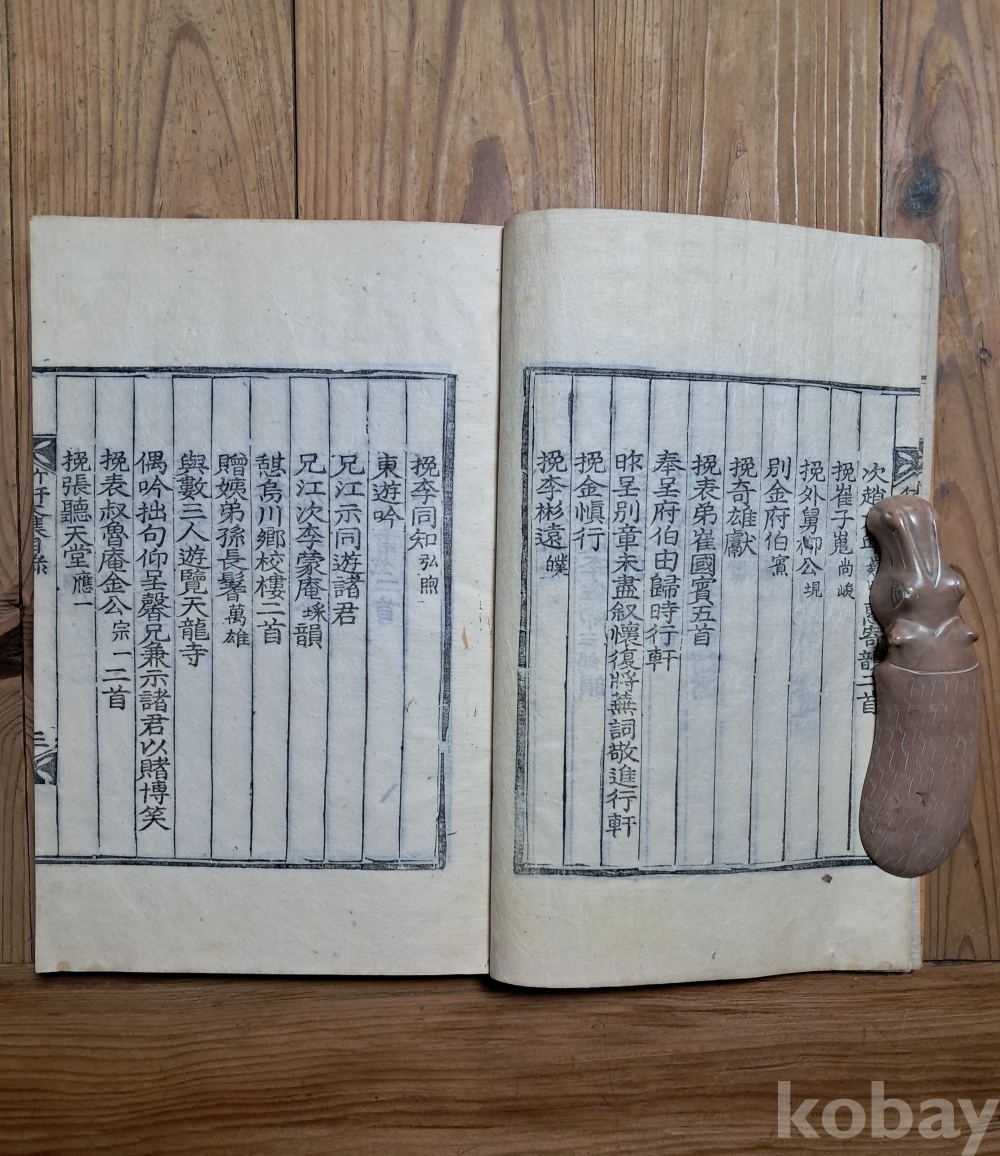 次趙 寄韻二首
挽崔子嵬尚峻
挽外舅仰公垷
別金府伯窩
挽奇雄獻
挽表弟崔國賓五首
奉呈府伯由歸時行軒
昨呈別章未盡叙懷復將蕪詞敬進行軒
挽金愼行
挽李彬遠㙸
挽李同知弘煦
東遊吟
兄江示同遊諸君
兄江次李蒙庵埰韻
憩烏川鄉校樓二首
贈姨弟孫長鬐萬雄
與數三人遊覽天龍寺
偶吟拙句仰呈馨兄兼示諸君以賭博笑
挽表叔魯庵金公宗一二首
挽張聽天堂應一
目錄
三
kobay